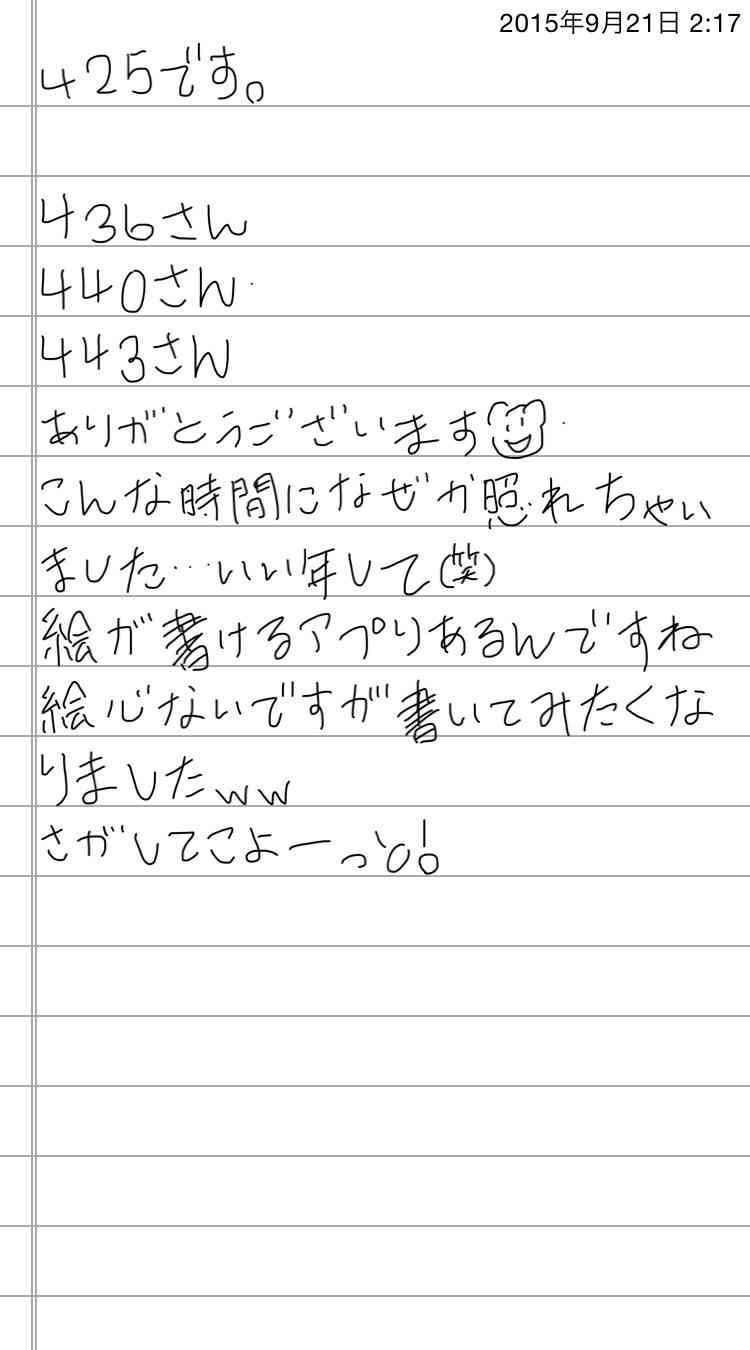 2015年9月21日 2:17
425です。
436さん
440さん
443さん
ありがとうございます
こんな時間になぜか照れちゃい
ました…いい年して(笑)
絵が書けるアプリあるんですね
絵心ないですが書いてみたくな
りましたww
さがしてこよーっと!